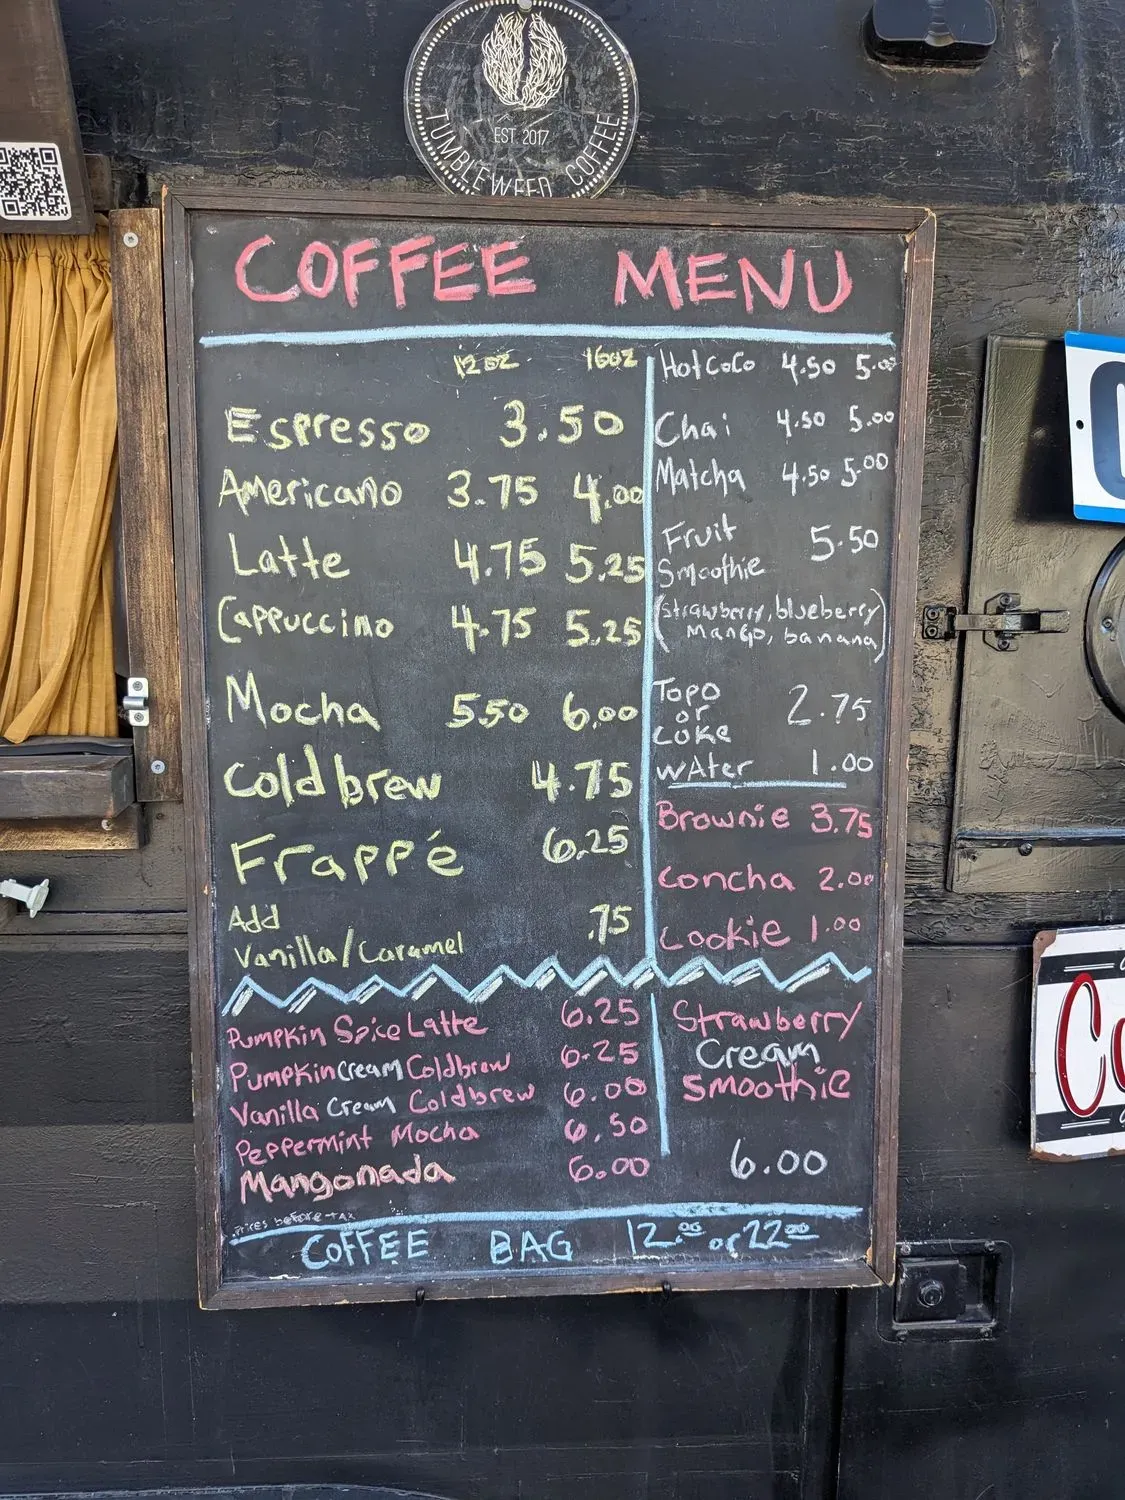 TUMBLEWEED COFFEE
EST. 2017
COFFEE MENU
12oz 16oz
Espresso 3.50
Americano 3.75 4.00
Latte 4.75 5.25
Cappuccino 4.75 5.25
Mocha 5.50 6.00
Coldbrew 4.75
Frappé 6.25
Add .75
Vanilla/Caramel
Hot CoCo 4.50 5.00
Chai 4.50 5.00
Matcha 4.50 5.00
Fruit 5.50
Smoothie
(strawberry, blueberry
Mango, banana)
Topo 2.75
or
Coke
WAter 1.00
Brownie 3.75
Concha 2.00
Cookie 1.00
Pumpkin Spice Latte 6.25
Pumpkin Cream Coldbrew 6.25
Vanilla Cream Coldbrew 6.00
Peppermint Mocha 6.50
Mangonada 6.00
Strawberry
Cream
Smoothie
6.00
Prices before tax
COFFEE BAG 12.00 or 22.00